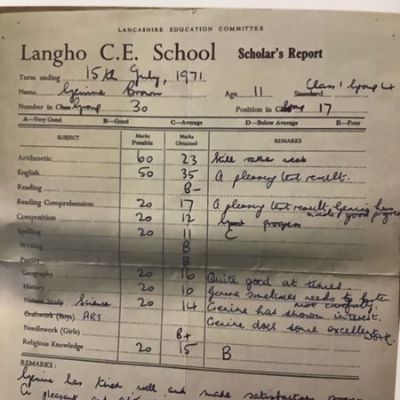 LANCASHIRE EDUCATION COMMITTEE
Langho C.E. School Scholar's Report
Term ending 15th July, 1971
Name Brown Age 11 Standard Class 1 Group 4
Number in Class Group 30 Position in Class Group 17
A—Very Good B—Good C—Average D—Below Average E—Poor
SUBJECT Marks Possible Marks Obtained REMARKS
Arithmetic 60 23 Still rather weak
English 50 35 A pleasing test result.
Reading B-
Reading Comprehension 20 17 A pleasing test result. has made good progress
Composition 20 12 Good progress
Spelling 20 11 C
Writing B
Poetry B
Geography 20 16 Quite good at times.
History 20 10 sometimes needs to listen more carefully.
Nature Study Science 20 14 has shown interest.
Craftwork (Boys) ART does some excellent work.
Needlework (Girls) B+
Religious Knowledge 20 15 B
REMARKS:
has tried well and made satisfactory
A pleasant and